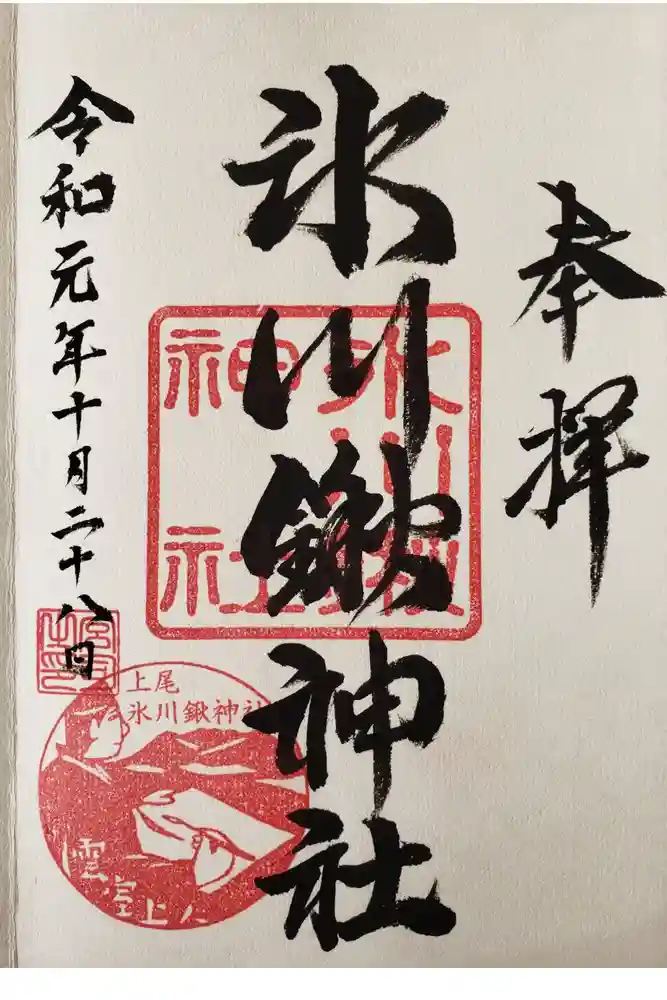 奉拝
氷川鍬神社
令和元年十月二十八日
氷川鍬
神社
上尾
氷川鍬神社
雲室上人